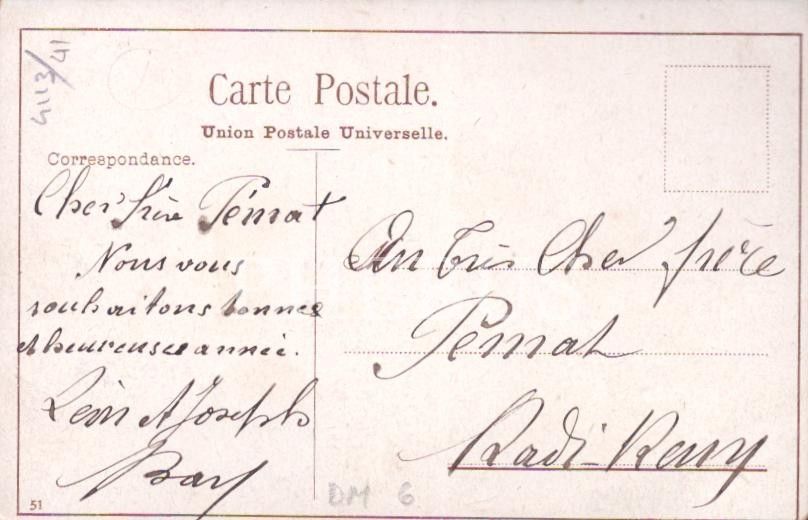 4113/41
Carte Postale.
Union Postale Universelle.
Correspondance.
Cher frère Pémat
Nous vous
souhaitons bonnes
et heureuses année.
Léon et Joseph
Au très Cher frère
Pémat
51
DM 6